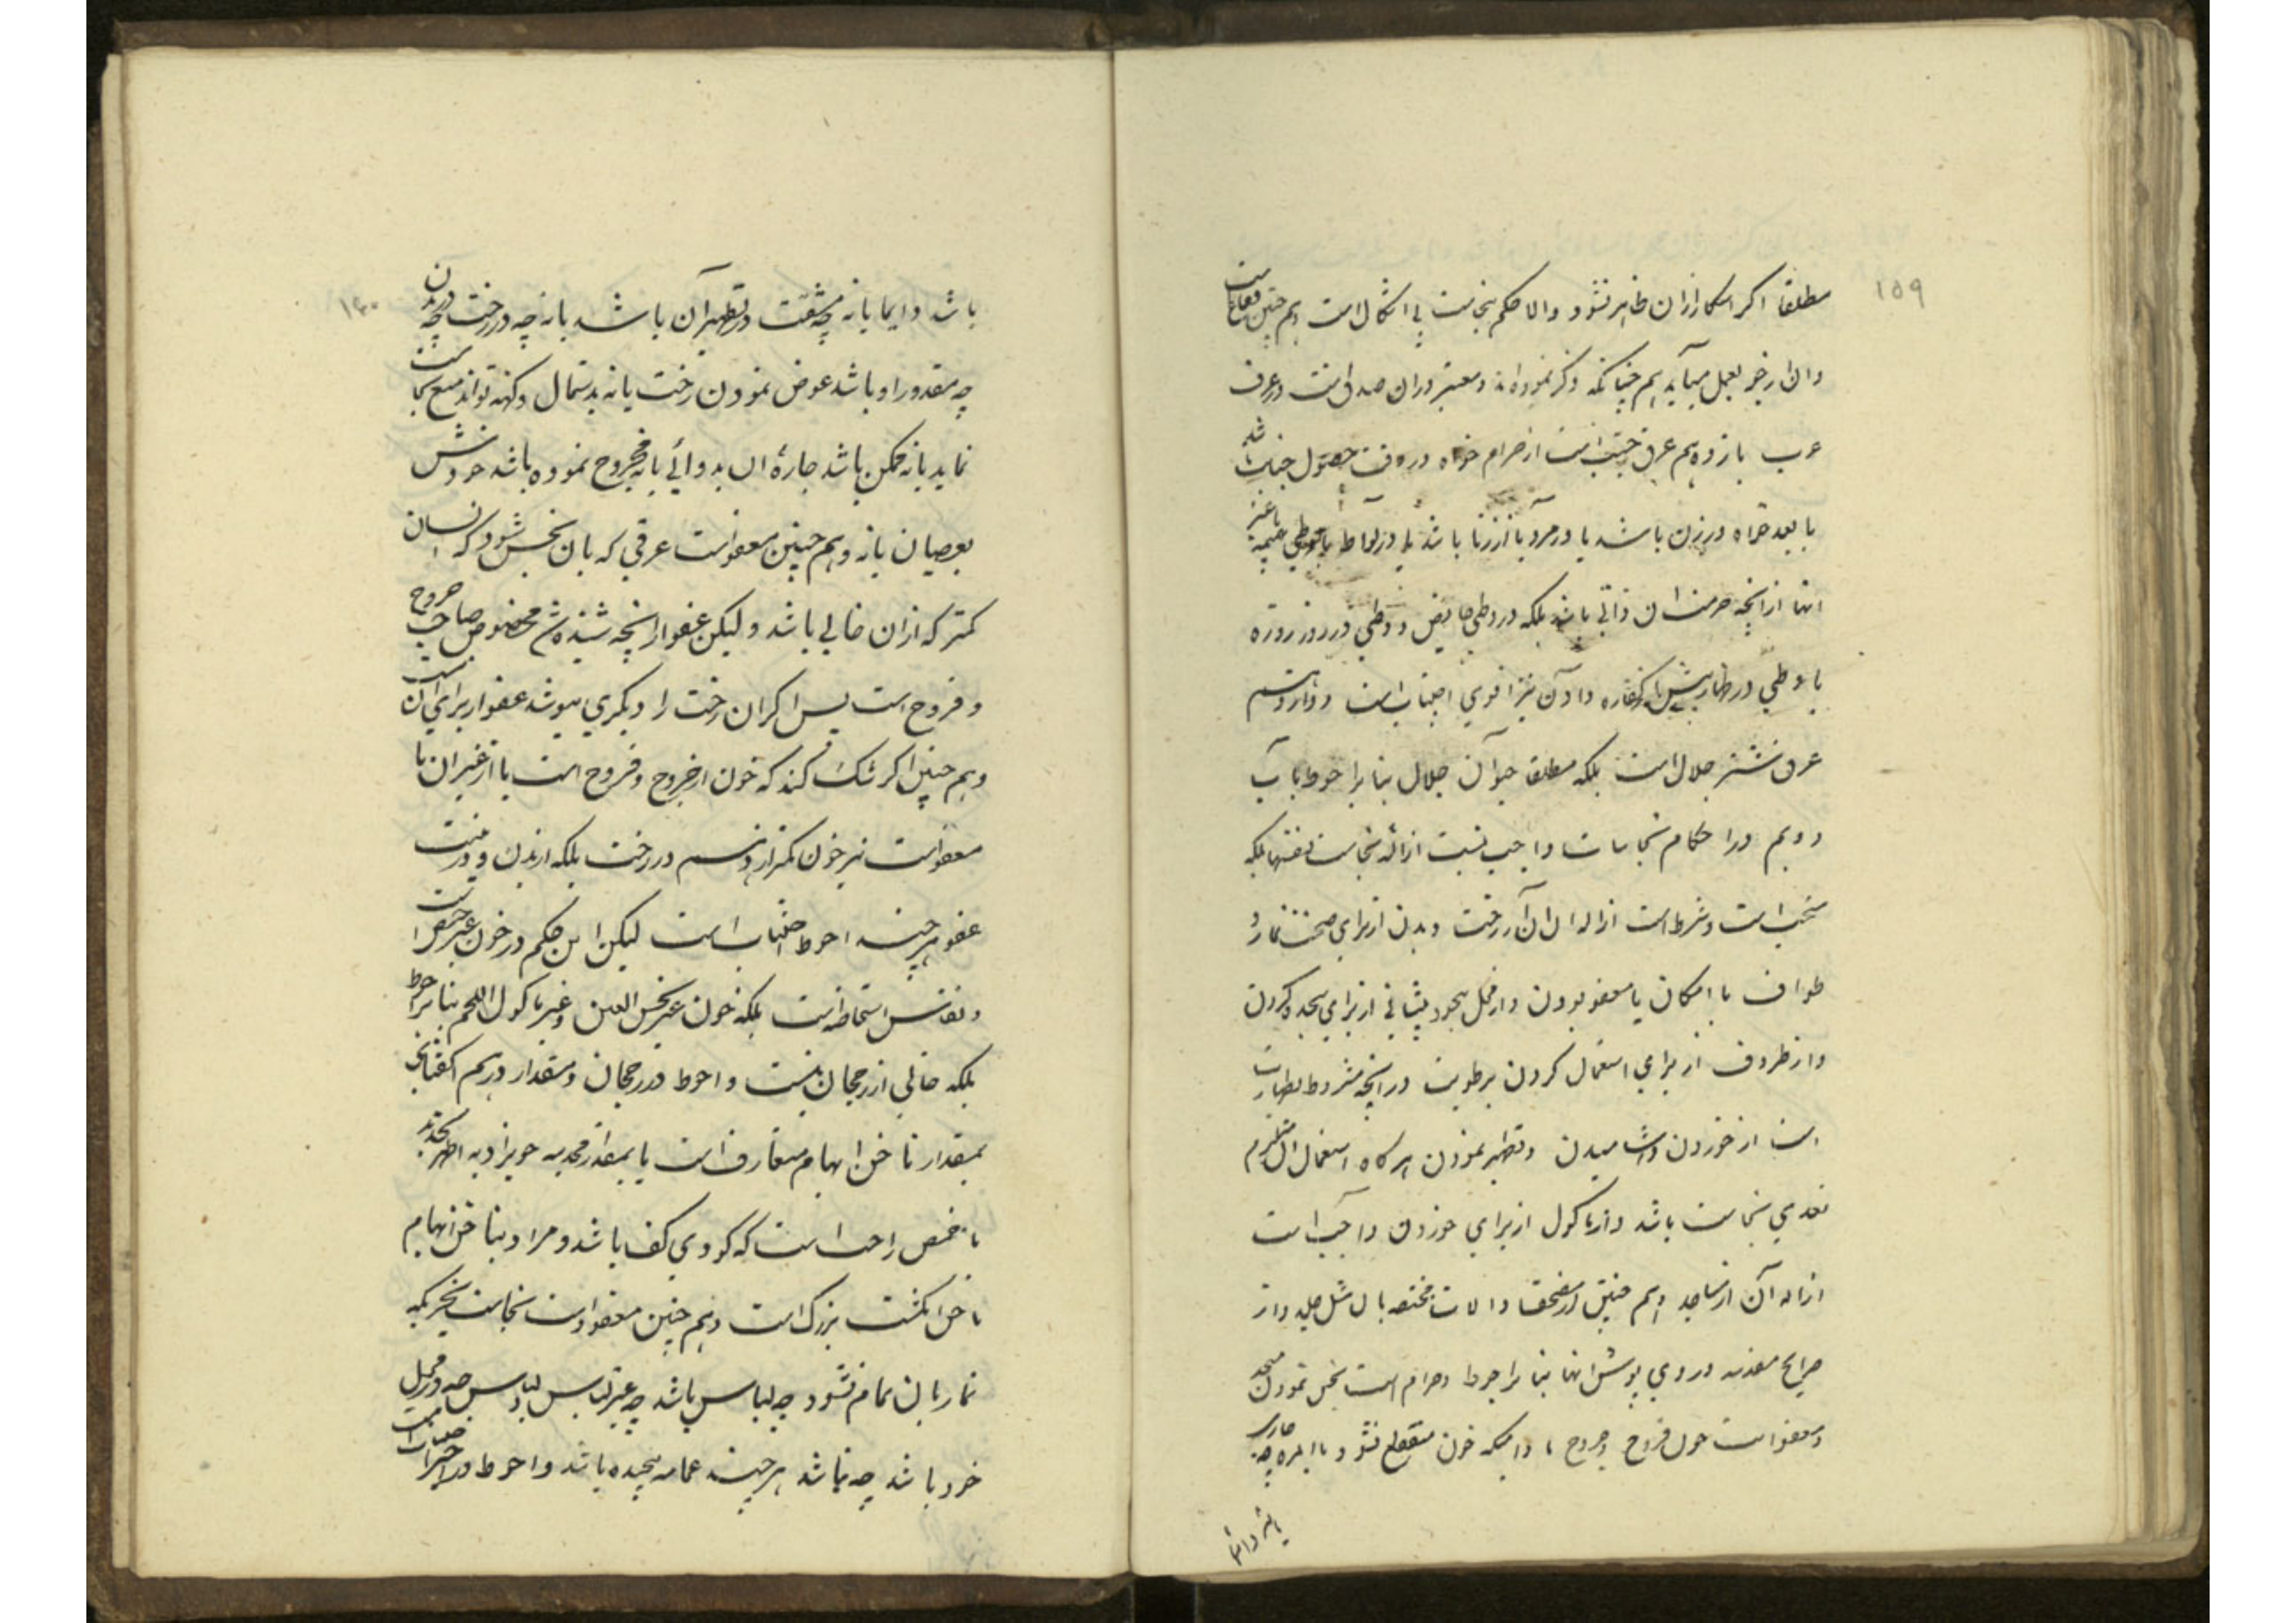 ۱۵۹
مطلقا اکر اسکار ازان ظاهر نشود والا حکم بنجاست بی اشکال است و هم چنین فقاع است
وان از جو بعمل میآید هم چنانکه ذکر نموده اند و معتبر دران صدق است در عرف
عرب یازدهم عرق جنب است از حرام خواه در وقت حصول جنابت باشد
یا بعد خواه در زن باشد یا در مرد یا از زنا باشد یا در لواط یا وطی بهیمه یا غیر
انها از انچه حرمت ان ذاتی باشد بلکه در وطی حایض و وطی در روز روزه
یا وطی در ظهار پیش از کفاره دادن نیز اقوی اجتناب است دوازدهم
عرق شتر جلال است بلکه مطلقا حیوان جلال بنا بر احوط باب
دویم در احکام نجاسات واجب نیست ازاله نجاست بنفسها بلکه
مستحب است و شرط است ازاله ان از رخت و بدن از برای صحت نماز و
طواف با امکان یا معفو بودن و از محل سجود پیشانی از برای سجده کردن
و از ظروف از برای استعمال کردن برطوبت در انچه مشروط بطهارت
است از خوردن و اشامیدن و تطهیر نمودن هر کاه استعمال ان مستلزم
تعدی نجاست باشد و از ماکول از برای خوردن واجب است
ازاله آن از مساجد و هم چنین از مصحف و الات مختصه بان مثل جلد و از
ضرایح مقدسه و روی پوش انها بنا بر احوط و حرام است نجس نمودن مسجد
و معفو است خون قروح و جروح مادامیکه خون منقطع نشود با المره چه جاری
باشد دایما
۱۶۰
باشد دایما یا نه چه مشقت در تطهیر آن باشد یا نه چه در رخت چه در بدن
چه مقدور او باشد عوض نمودن رخت یا نه بدستمال و کهنه تواند منع نجاست
نماید یا نه ممکن باشد چارهٔ ان بدوائی یا نه مجروح نموده باشد خودش
بعصیان یا نه و هم چنین معفو است عرقی که بان نجس شود که انسان
کمتر که ازان خالی باشد و لیکن عفو از انچه شنیده شد مخصوص صاحب جروح
و قروح است پس اکر ان رخت را دیکری بپوشد عفو از برای آن نیست
و هم چنین اکر شک کند که خون از جروح و قروح است یا از غیر ان یا
معفو است نیز خون کمتر از درهم در رخت بلکه در بدن و در نیت
عفو هر چند احوط اجتناب است لیکن این حکم در خون غیر حیض است
و نفاس استحاضه است بلکه خون غیر نجس العین و غیر ماکول اللحم بنا بر احوط
بلکه خالی از رجحان نیست و احوط در رجحان و مقدار درهم اکتفا نمودن
بمقدار ناخن ابهام متعارف است یا بمقدار
با خمص راحت است که کودی کف باشد و مراد بناخن ابهام
ناخن انکشت بزرک است و هم چنین معفو است نجاست چیزیکه
نماز بان تمام نشود چه لباس باشد چه غیر لباس چه در محل
خود باشد چه نباشد هر چند عمامه پیچیده باشد و احوط در اخیر اجتناب است